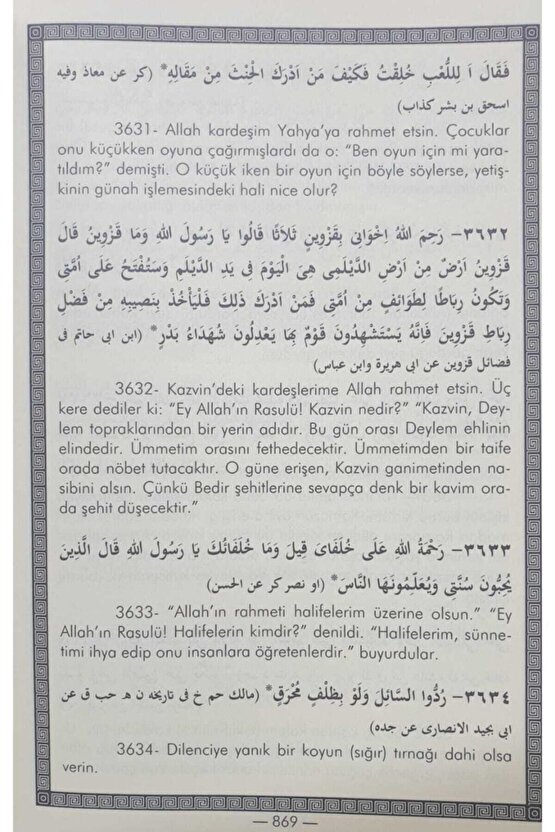 فَقَالَ اَ لِلُّعْبِ خُلِقْتُ فَكَيْفَ مَنْ اَدْرَكَ الْحِنْثَ مِنْ مَقَالِهِ* (كر عن معاذ وفيه
اسحق بن بشر كذاب)
3631- Allah kardeşim Yahya’ya rahmet etsin. Çocuklar
onu küçükken oyuna çağırmışlardı da o: “Ben oyun için mi yara-
tıldım?” demişti. O küçük iken bir oyun için böyle söylerse, yetiş-
kinin günah işlemesindeki hali nice olur?
٣٦٣٢- رَحِمَ اللهُ اِخْوَانِى بِقَزْوِينَ ثَلَاثًا قَالُوا يَا رَسُولَ اللهِ وَمَا قَزْوِينُ قَالَ
قَزْوِينُ اَرْضٌ مِنْ اَرْضِ الدَّيْلَمِى هِىَ الْيَوْمَ فِى يَدِ الدَّيْلَمِ وَسَتُفْتَحُ عَلَى اُمَّتِى
وَتَكُونُ رِبَاطًا لِطَوَائِفَ مِنْ اُمَّتِى فَمَنْ اَدْرَكَ ذَلِكَ فَلْيَأْخُذْ بِنَصِيبِهِ مِنْ فَضْلِ
رِبَاطِ قَزْوِينَ فَاِنَّهُ يَسْتَشْهِدُونَ قَوْمٌ بِهَا يَعْدِلُونَ شُهَدَاءَ بَدْرٍ* (ابن ابى حاتم فى
فضائل قزوين عن ابى هريرة وابن عباس)
3632- Kazvin’deki kardeşlerime Allah rahmet etsin. Üç
kere dediler ki: “Ey Allah’ın Rasulü! Kazvin nedir?” “Kazvin, Dey-
lem topraklarından bir yerin adıdır. Bu gün orası Deylem ehlinin
elindedir. Ümmetim orasını fethedecektir. Ümmetimden bir taife
orada nöbet tutacaktır. O güne erişen, Kazvin ganimetinden na-
sibini alsın. Çünkü Bedir şehitlerine sevapça denk bir kavim ora-
da şehit düşecektir.”
٣٦٣٣- رَحْمَةُ اللهِ عَلَى خُلَفَاىَ قِيلَ وَمَا خُلَفَائُكَ يَا رَسُولَ اللهِ قَالَ الَّذِينَ
يُحِبُّونَ سُنَّتِى وَيُعَلِّمُونَهَا النَّاسَ* (او نصر كر عن الحسن)
3633- “Allah’ın rahmeti halifelerim üzerine olsun.” “Ey
Allah’ın Rasulü! Halifelerin kimdir?” denildi. “Halifelerim, sünne-
timi ihya edip onu insanlara öğretenlerdir.” buyurdular.
٣٦٣٤- رُدُّوا السَّائِلَ وَلَوْ بِظِلْفٍ مُحْرَقٍ* (مالك حم خ فى تاريخه ن هـ حب ق عن
ابى بجيد الانصارى عن جده)
3634- Dilenciye yanık bir koyun (sığır) tırnağı dahi olsa
verin.
— 869 —